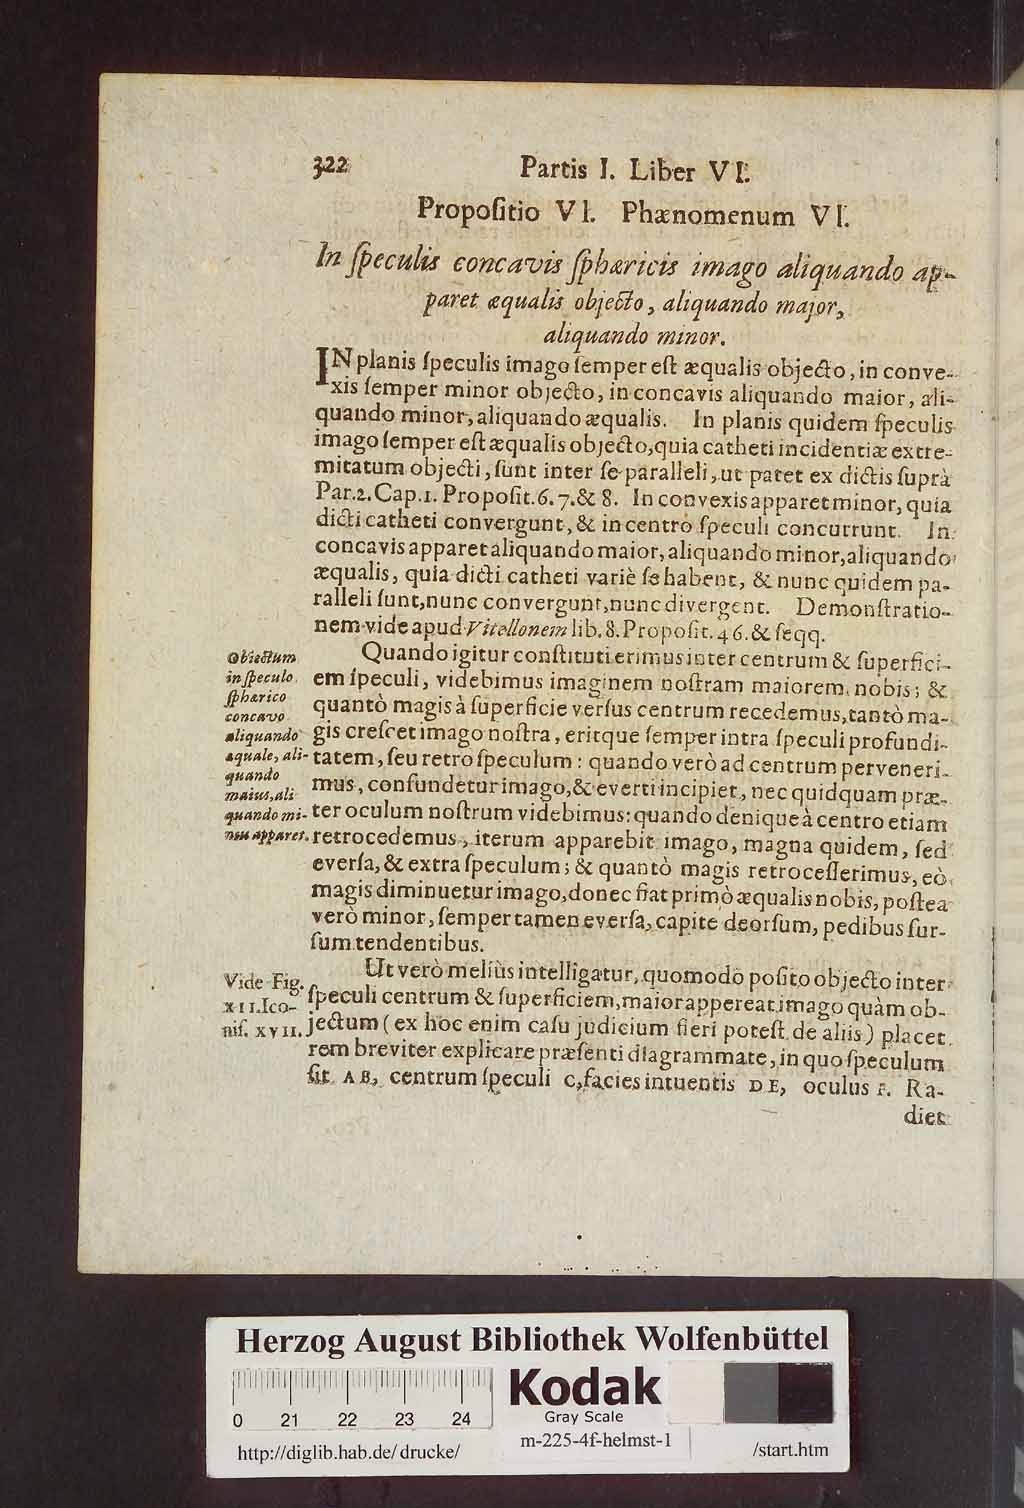 322 Partis I. Liber VI.
Propoſitio VI. Phænomenum VI.
In ſpeculis concavis ſphæricis imago aliquando ap-
paret æqualis objecto, aliquando major,
aliquando minor.
IN planis ſpeculis imago ſemper eſt æqualis objecto, in conve-
xis ſemper minor objecto, in concavis aliquando maior, ali-
quando minor, aliquando æqualis. In planis quidem ſpeculis
imago ſemper eſt æqualis objecto, quia catheti incidentiæ extre-
mitatum objecti, ſunt inter ſe paralleli, ut patet ex dictis ſuprà
Par. 2. Cap. 1. Propoſit. 6. 7. & 8. In convexis apparet minor, quia
dicti catheti convergunt, & in centro ſpeculi concurrunt. In
concavis apparet aliquando maior, aliquando minor, aliquando
æqualis, quia dicti catheti variè ſe habent, & nunc quidem pa-
ralleli ſunt, nunc convergunt, nunc divergent. Demonſtratio-
nem vide apud Vitellonem lib. 8. Propoſit. 46. & ſeqq.
Obiectum
in ſpeculo
ſphærico
concavo
aliquando
æquale, ali-
quando
maius, ali
quando mi-
nus apparet.
Quando igitur conſtituti erimus inter centrum & ſuperfici-
em ſpeculi, videbimus imaginem noſtram maiorem nobis; &
quantò magis à ſuperficie verſus centrum recedemus, tantò ma-
gis creſcet imago noſtra, eritque ſemper intra ſpeculi profundi-
tatem, ſeu retro ſpeculum: quando verò ad centrum perveneri-
mus, confundetur imago, & everti incipiet, nec quidquam præ-
ter oculum noſtrum videbimus: quando denique à centro etiam
retrocedemus, iterum apparebit imago, magna quidem, ſed
everſa, & extra ſpeculum; & quantò magis retroceſſerimus, eò
magis diminuetur imago, donec fiat primò æqualis nobis, poſtea
verò minor, ſemper tamen everſa, capite deorſum, pedibus ſur-
ſum tendentibus.
Vide Fig.
XII. Ico-
niſ. XVII.
Ut verò meliùs intelligatur, quomodo poſito objecto inter
ſpeculi centrum & ſuperficiem, maior appereat imago quàm ob-
jectum (ex hoc enim caſu judicium fieri poteſt de aliis) placet
rem breviter explicare præſenti diagrammate, in quo ſpeculum
ſit AB, centrum ſpeculi C, facies intuentis DE, oculus F. Ra-
diet
Herzog August Bibliothek Wolfenbüttel
0 21 22 23 24
Kodak
Gray Scale
m-225-4f-helmst-1
http://diglib.hab.de/drucke/ /start.htm